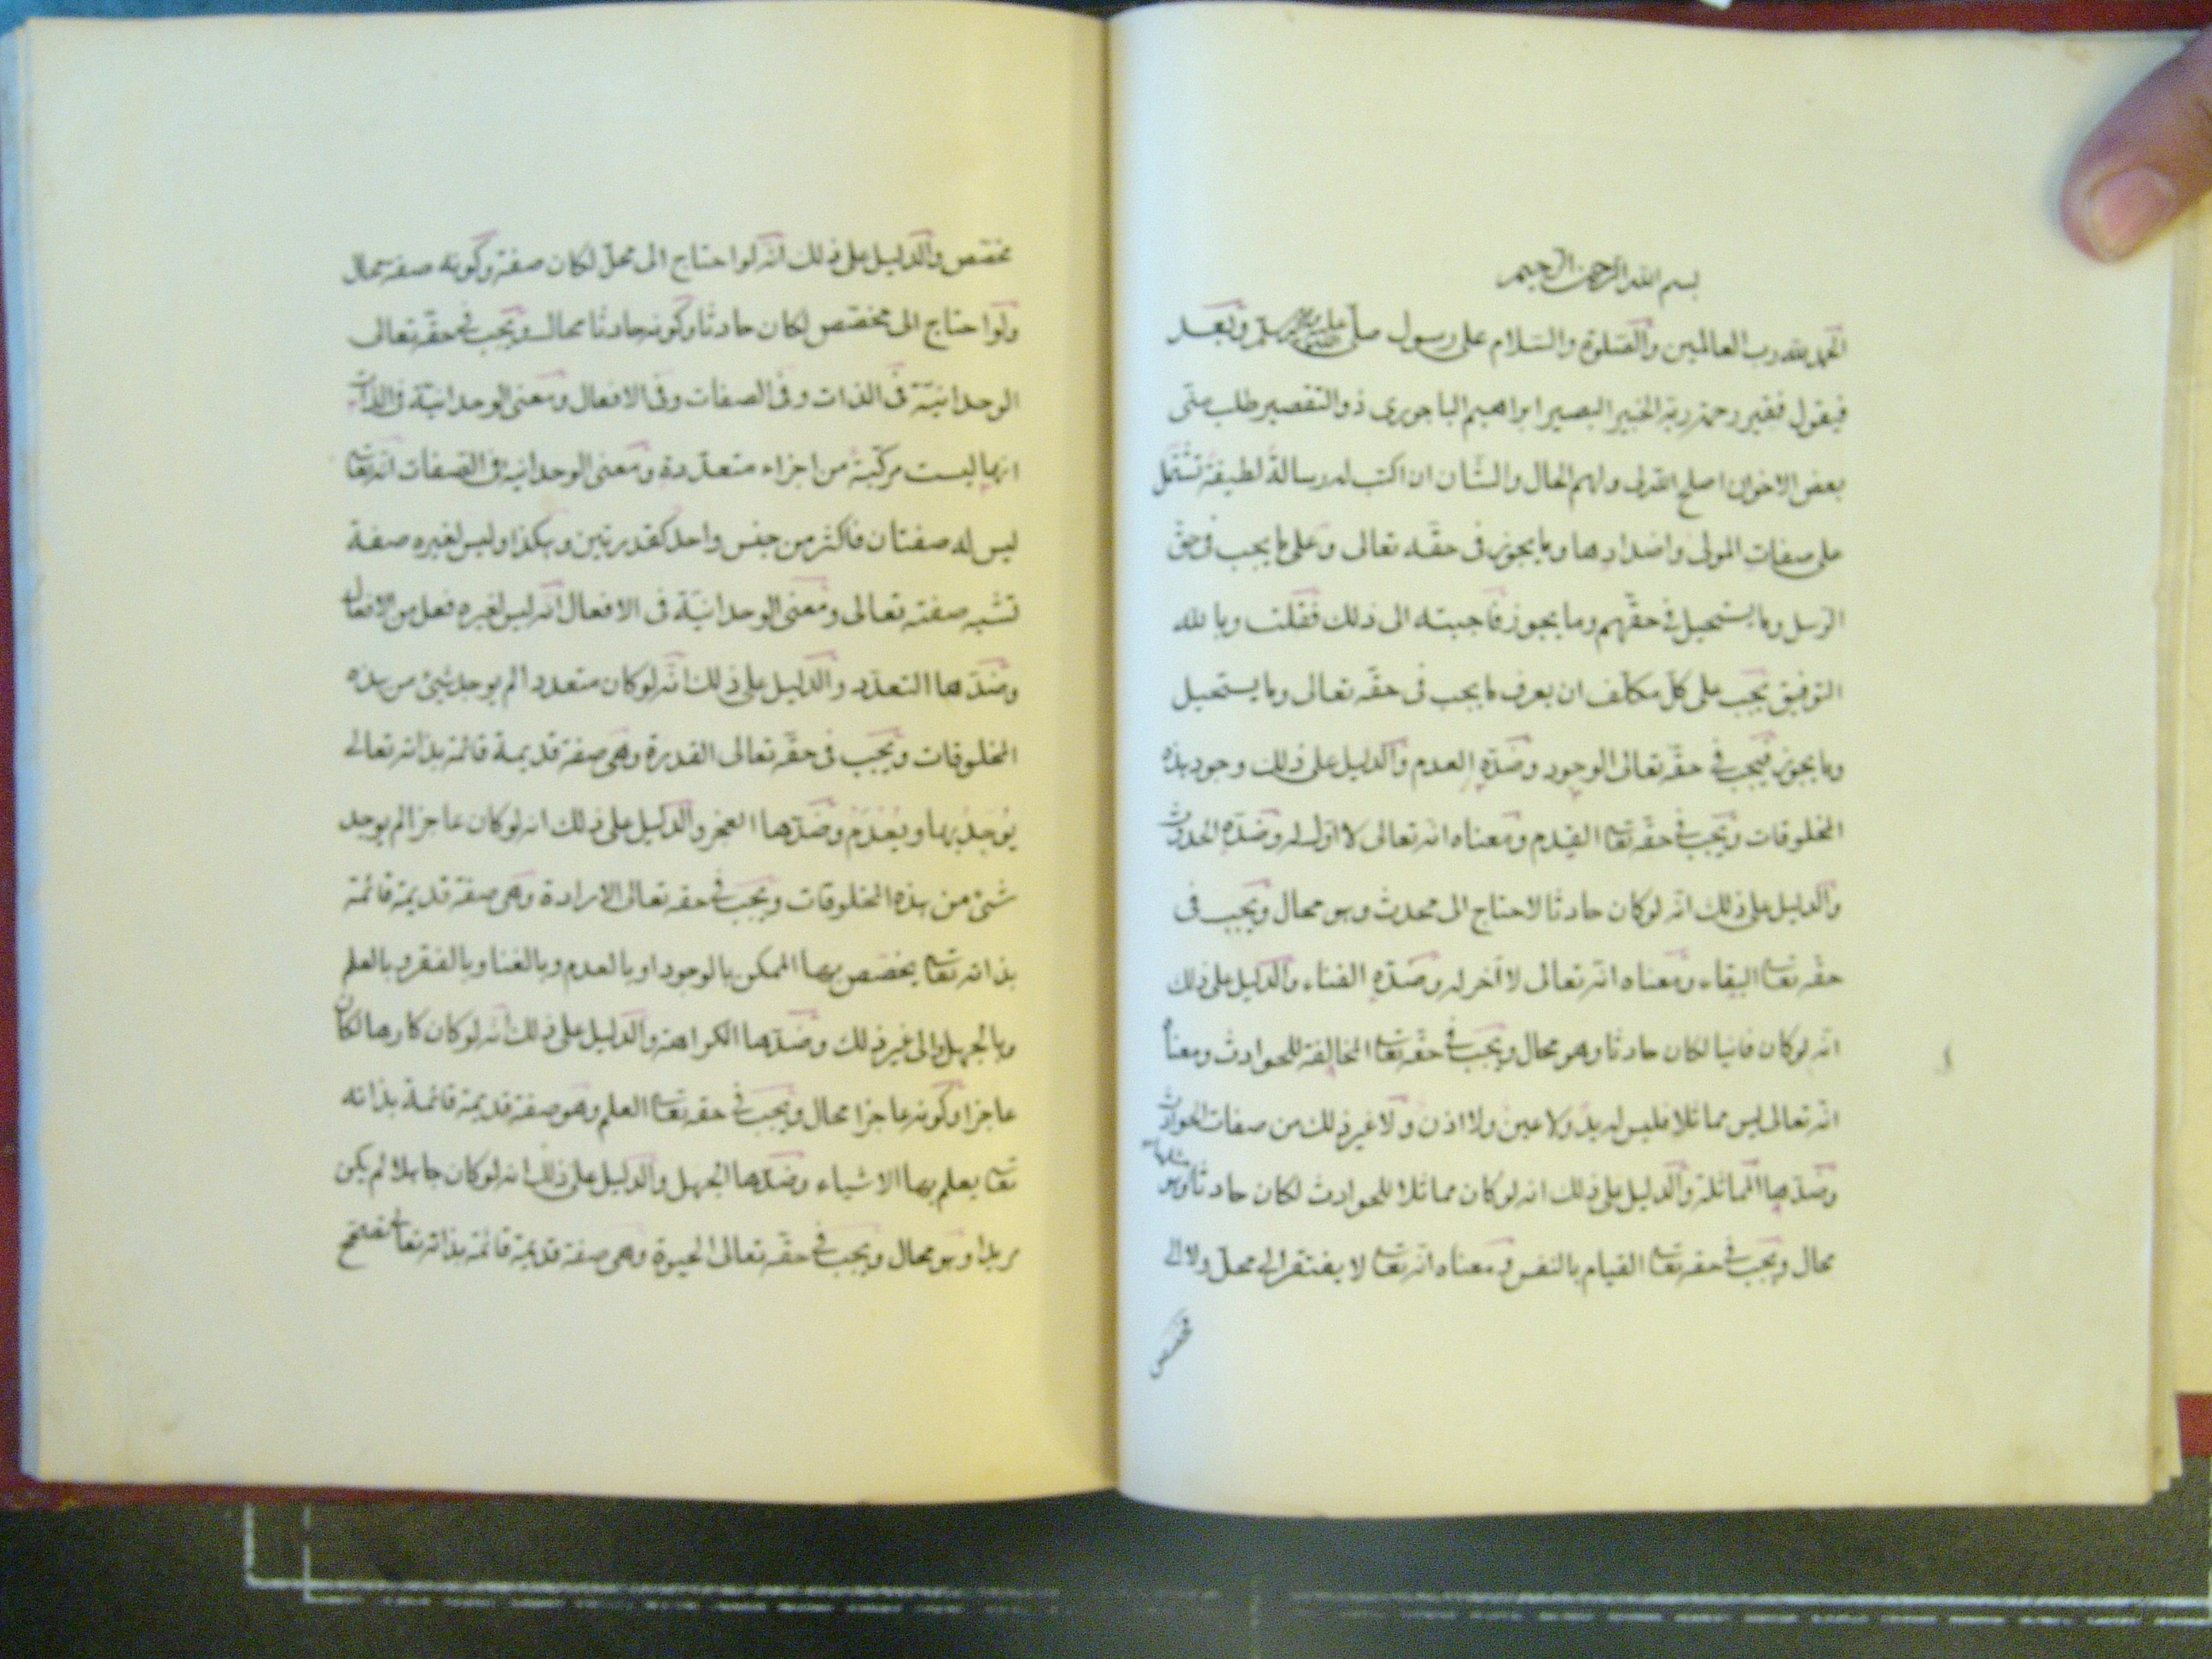 بسم الله الرحمن الرحيم
الحمد لله رب العالمين والصلوة والسلام على رسول صلى الله عليه وسلم وبعد
فيقول فقير رحمة ربه الخبير البصير ابراهيم الباجورى ذو التقصير طلب منى
بعض الاخوان اصلح الله لى ولهم الحال والشان ان اكتب له رسالة لطيفة تشتمل
على صفات المولى واضدادها وما يجوز فى حقه تعالى وعلى ما يجب فى حق
الرسل وما يستحيل فى حقهم وما يجوز فاجبته الى ذلك فقلت وبالله
التوفيق يجب على كل مكلف ان يعرف ما يجب فى حقه تعالى وما يستحيل
وما يجوز فيجب فى حقه تعالى الوجود وضده العدم والدليل على ذلك وجود هذه
المخلوقات ويجب فى حقه تعا القدم ومعناه انه تعالى لا اول له وضده الحدوث
والدليل على ذلك انه لو كان حادثا لاحتاج الى محدث وهو محال ويجب فى
حقه تعا البقاء ومعناه انه تعالى لا آخر له وضده الفناء والدليل على ذلك
انه لو كان فانيا لكان حادثا وهو محال ويجب فى حقه تعا المخالفة للحوادث ومعناه
انه تعالى ليس مماثلا فليس له يد ولا عين ولا اذن ولا غير ذلك من صفات الحوادث
وضدها المماثلة والدليل على ذلك انه لو كان مماثلا للحوادث لكان حادثا مثلها وهو
محال ويجب فى حقه تعا القيام بالنفس ومعناه انه تعا لا يفتقر الى محل ولا الى
مخصص
مخصص والدليل على ذلك انه لو احتاج الى محل لكان صفة وكونه صفة محال
ولو احتاج الى مخصص لكان حادثا وكونه حادثا محال ويجب فى حقه تعالى
الوحدانية فى الذات وفى الصفات وفى الافعال ومعنى الوحدانية فى الذات
انها ليست مركبة من اجزاء متعددة ومعنى الوحدانية فى الصفات انه تعا
ليس له صفتان فاكثر من جنس واحد كقدرتين وهكذا وليس لغيره صفة
تشبه صفته تعالى ومعنى الوحدانية فى الافعال انه ليس لغيره فعل من الافعال
وضدها التعدد والدليل على ذلك انه لو كان متعددا لم يوجد شئ من هذه
المخلوقات ويجب فى حقه تعالى القدرة وهى صفة قديمة قائمة بذاته تعالى
يوجد بها ويعدم وضدها العجز والدليل على ذلك انه لو كان عاجزا لم يوجد
شئ من هذه المخلوقات ويجب فى حقه تعالى الارادة وهى صفة قديمة قائمة
بذاته تعا يخصص بها الممكن بالوجود او بالعدم وبالغنا وبالفقر وبالعلم
وبالجهل والى غير ذلك وضدها الكراهة والدليل على ذلك انه لو كان كارها لكان
عاجزا وكونه عاجزا محال ويجب فى حقه تعا العلم وهو صفة قديمة قائمة بذاته
تعا يعلم بها الاشياء وضدها الجهل والدليل على ذلك انه لو كان جاهلا لم يكن
مريدا وهو محال ويجب فى حقه تعالى الحيوة وهى صفة قديمة قائمة بذاته تعا تصحح